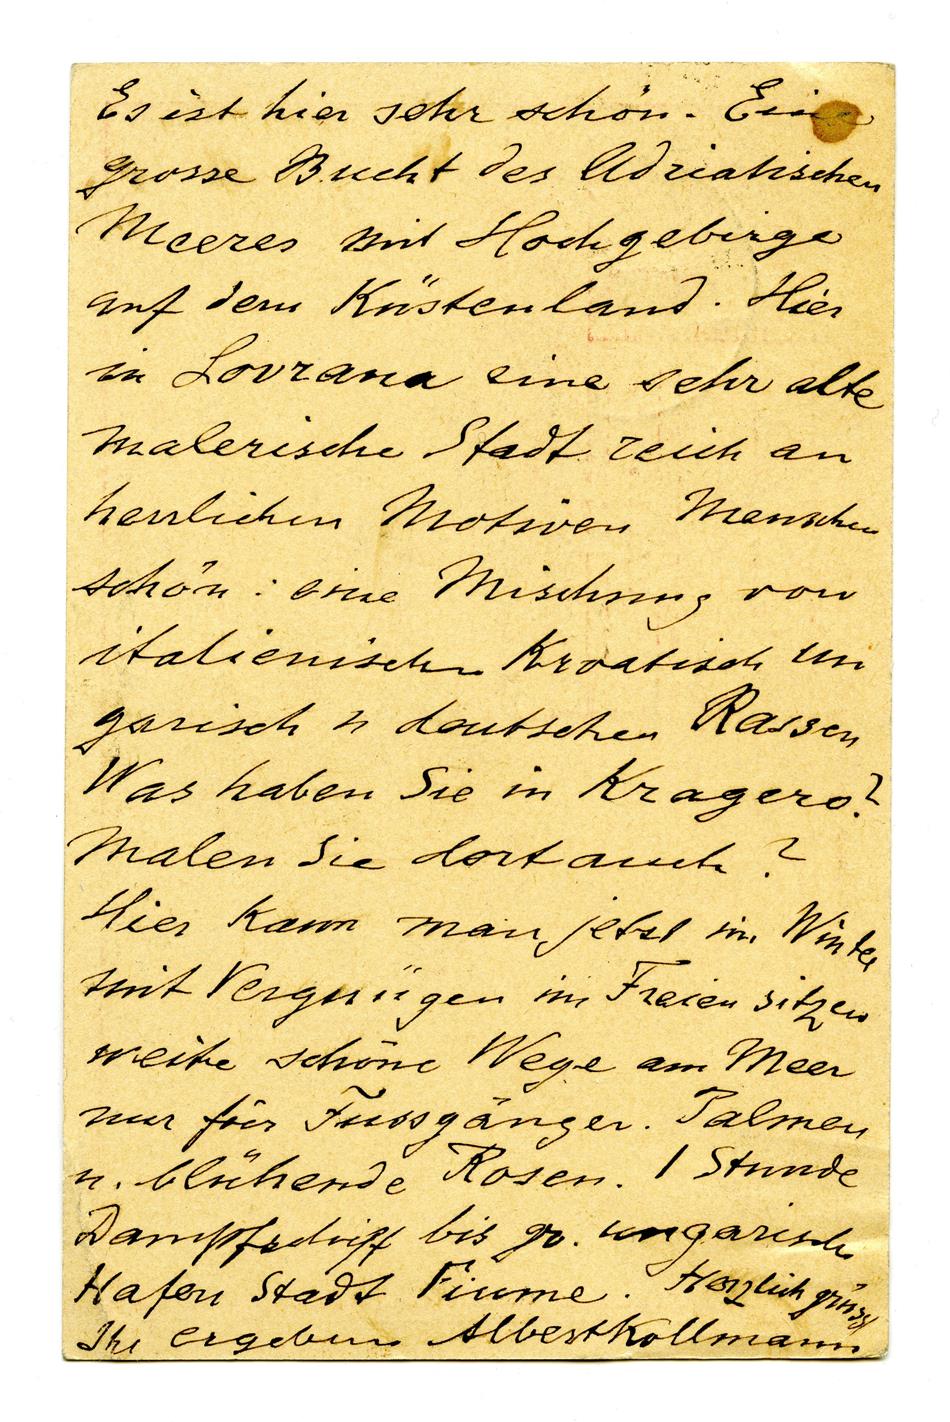 Es ist hier sehr schön. Eine
grosse Bucht des Adriatischen
Meeres mit Hochgebirge
auf dem Küstenland. Hier
in Lovrana eine sehr alte
malerische Stadt reich an
herrlichen Motiven Menschen
schön: eine Mischung von
italienischen Kroatisch un
garisch u deutschen Rassen
Was haben Sie in Kragero?
Malen Sie dort auch?
Hier kann man jetzt im Winter
mit Vergnügen im Freien sitzen
weite schöne Wege am Meer
nur für Fussgänger. Palmen
u. blühende Rosen. 1 Stunde
Dampfschiff bis gr. ungarisch
Hafen Stadt Fiume. Herzlich grüsst
Ihr ergebens Albert Kollmann